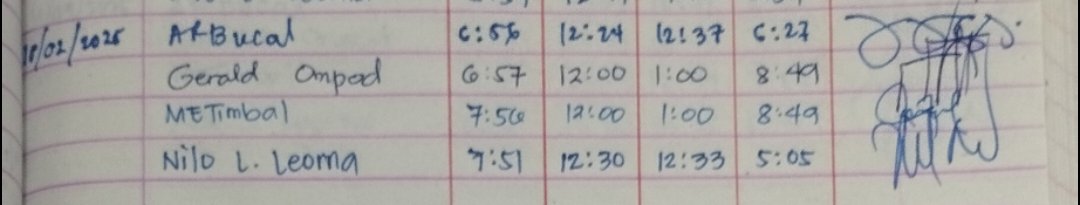 18/02/2025 ARBucal 6:56 12:24 12:37 6:27
Gerald Ompad 6:57 12:00 1:00 8:49
METimbal 7:56 12:00 1:00 8:49
Nilo L. Leoma 7:51 12:30 12:33 5:05